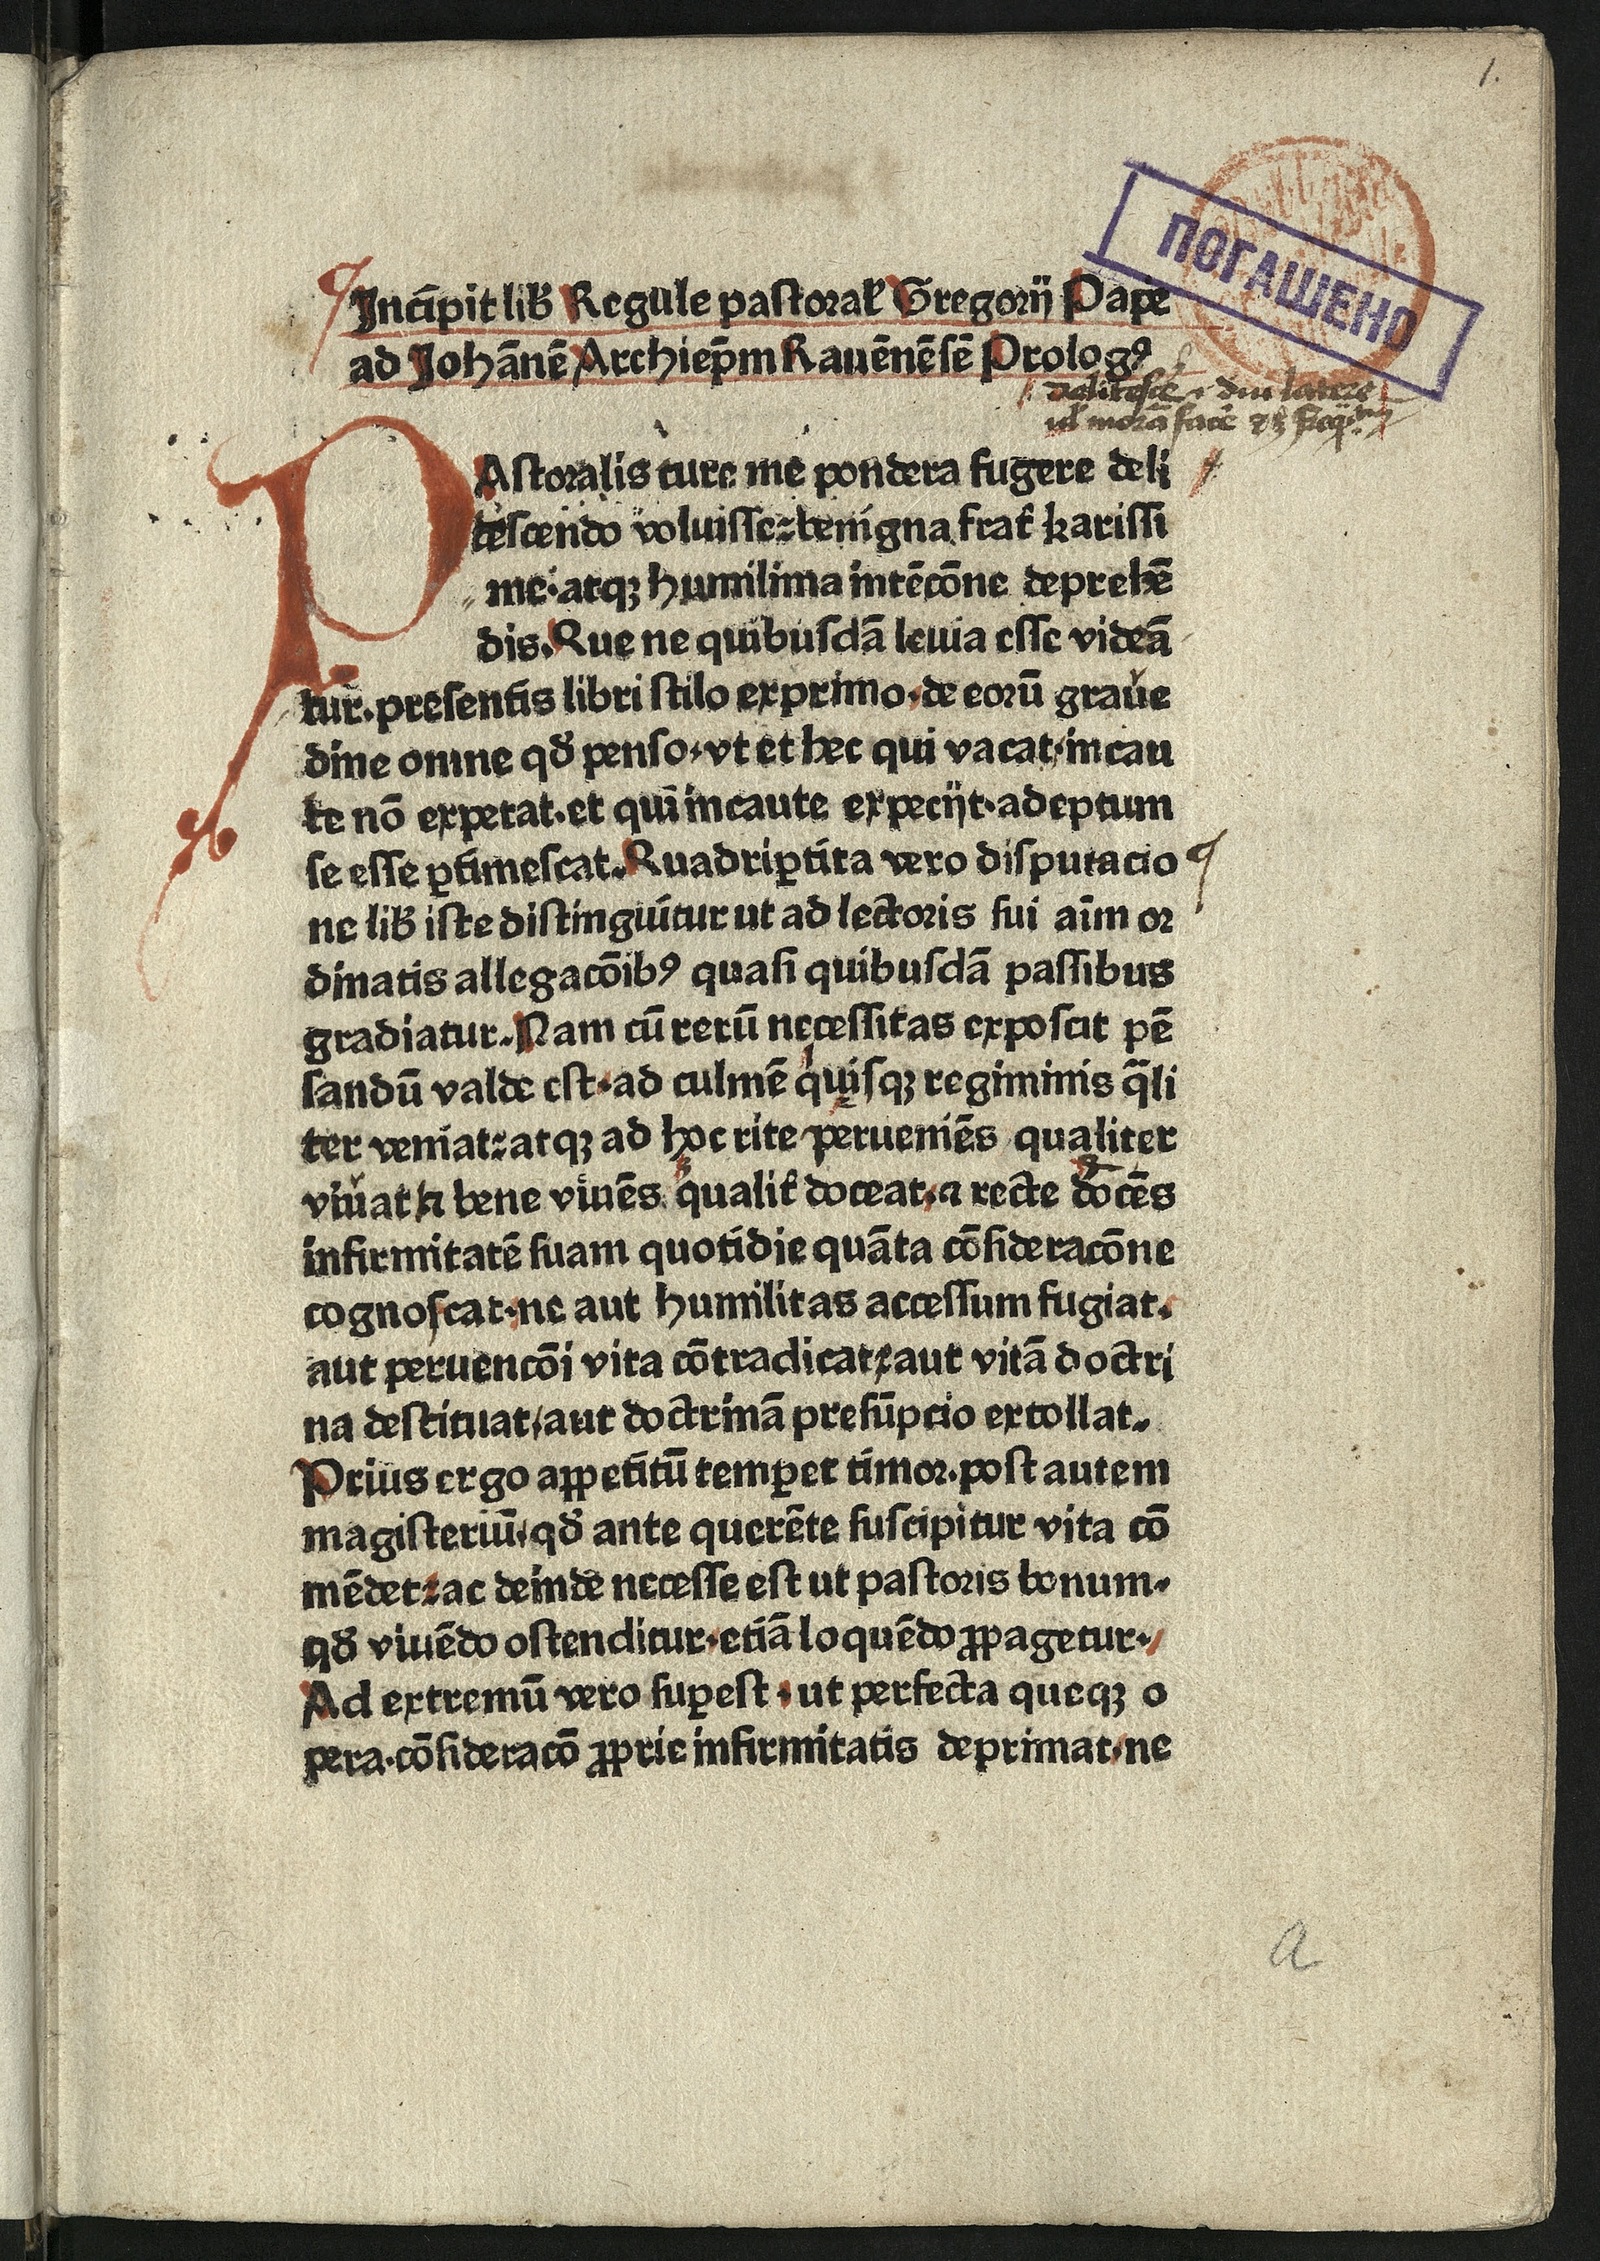 1.
ПОГАШЕНО
Incipit lib̄ Regule pastoral̄ Gregorij Pape
ad Johānē Archiep̄m Rauēnēsē Prologꝰ
delitesce̅ ⁊ diu latere
PAstoralis cure me pondera fugere deli
tescendo voluisse: benigna frat̄ karissi
me·atqꝫ humilima intēcōne deprehē
dis. Que ne quibusdā leuia esse videā
tur. presentis libri stilo exprimo·de eorū graue
dine omne qđ penso·vt et hec qui vacat·incau
te nō expetat·et qui incaute expecijt·adeptum
se esse ꝑtimescat. Quadriꝑtita vero disputacio
ne lib̄ iste distinguitur ut ad lectoris sui aīm or
dinatis allegacōibꝰ quasi quibusdā passibus
gradiatur. Nam cū rerū necessitas exposcit pē
sandū valde est·ad culmē quisqꝫ regiminis q̄li
ter veniat: atqꝫ ad hoc rite perueniēs qualiter
viuat ⁊ bene viuēs qualit̄ doceat·⁊ recte docēs
infirmitatē suam quotidie quāta cōsideracōne
cognoscat·ne aut humilitas accessum fugiat.
aut peruencōi vita cōtradicat: aut vitā doctri
na destituat·aut doctrinā presūpcio extollat.
Prius ergo appetitū temꝑet timor·post autem
magisteriū·qđ ante querēte suscipitur vita cō
mēdet: ac deinde necesse est ut pastoris bonum·
qđ viuēdo ostenditur·etiā loquēdo ꝓpagetur·
Ad extremū vero suꝑest·ut perfecta queqꝫ o
pera·cōsideracō ꝓprie infirmitatis deprimat·ne
a